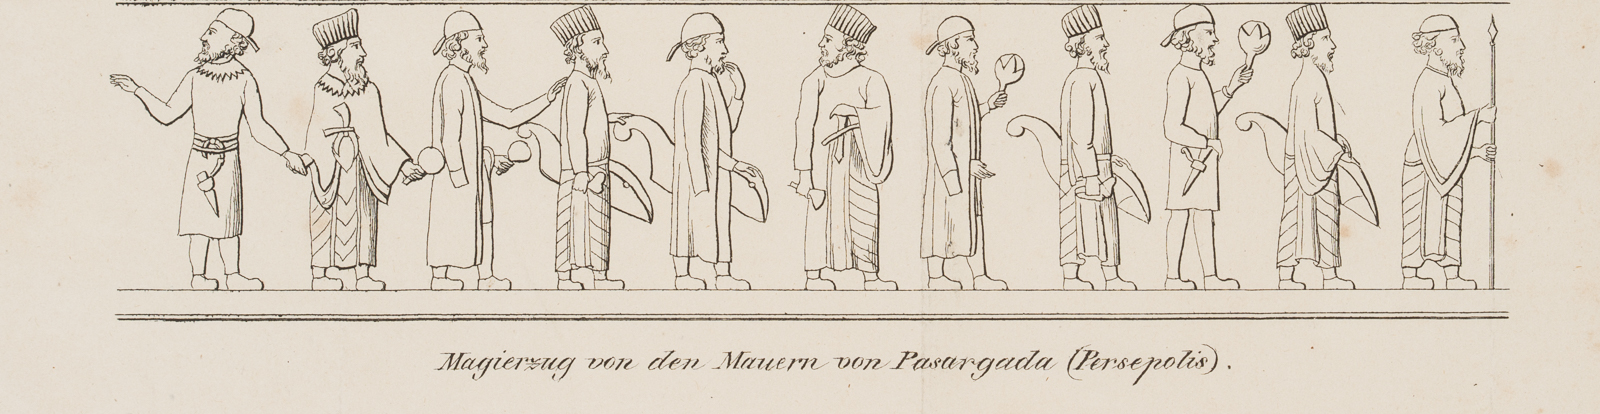 Magierzug von den Mauern von Pasargada (Persepolis).